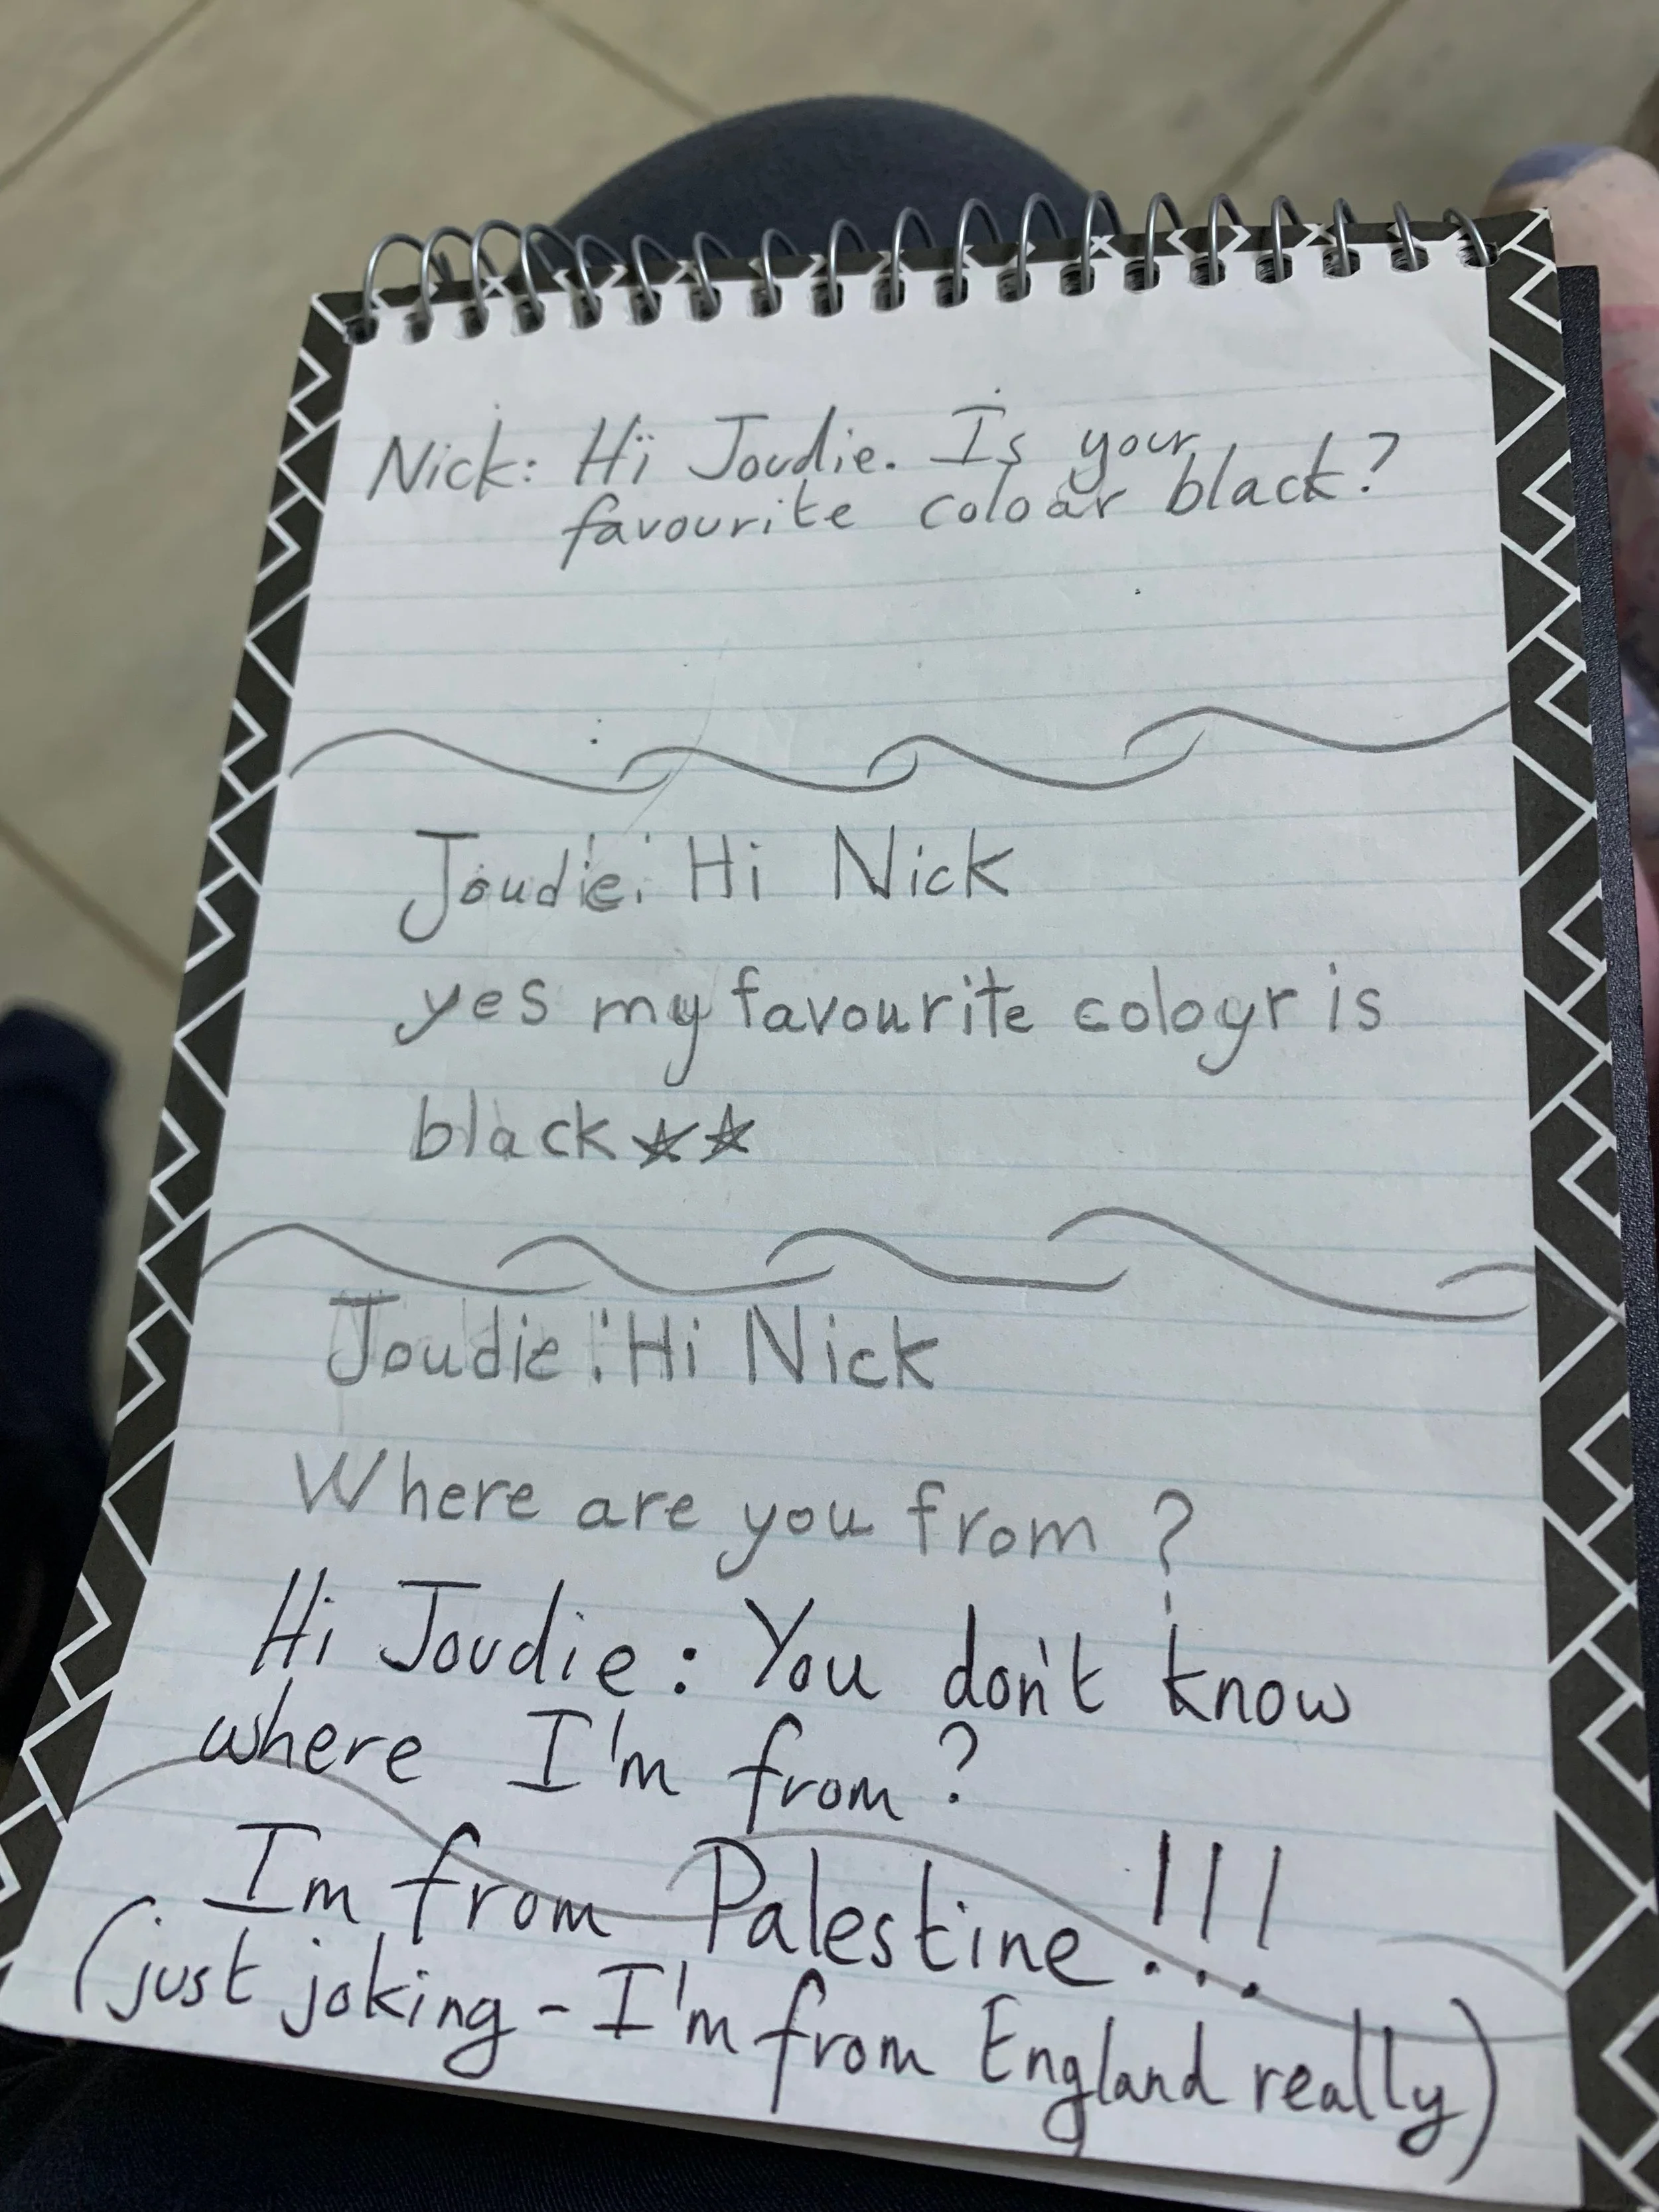 Nick: Hi Joudie. Is your
favourite colour black?
Joudie: Hi Nick
yes my favourite coloyr is
black☆☆
Joudie: Hi Nick
Where are you from?
Hi Joudie: You don't know
where I'm from?
Im from Palestine!!!...
(just joking - I'm from England really)